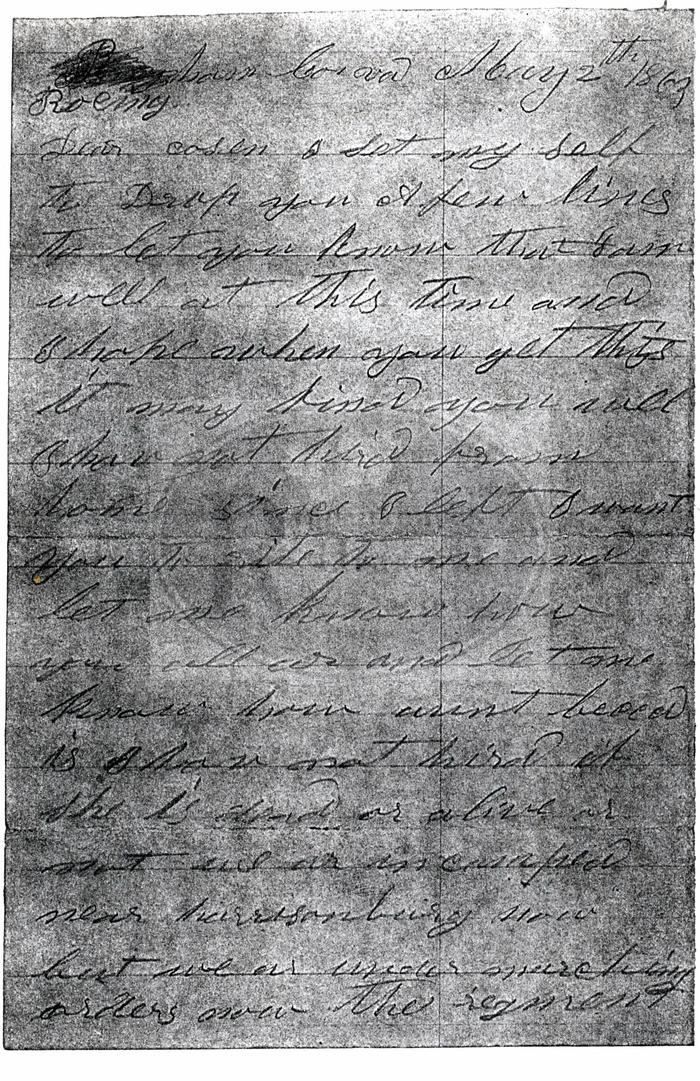 ham Co va May 2th 1863
Rocing
Dear cosen I set my self
to Drop you A few lines
to let you know that I am
well at this time and
I hope when you get this
it may find you well
I hav not hird from
home since I left I want
you to rite to me and
let me know how
you all ar and let me
know how aunt
is I hav not hird if
she is dead or alive or
not we ar in camped
near harrisonburg now
but we ar under marching
orders now the regment